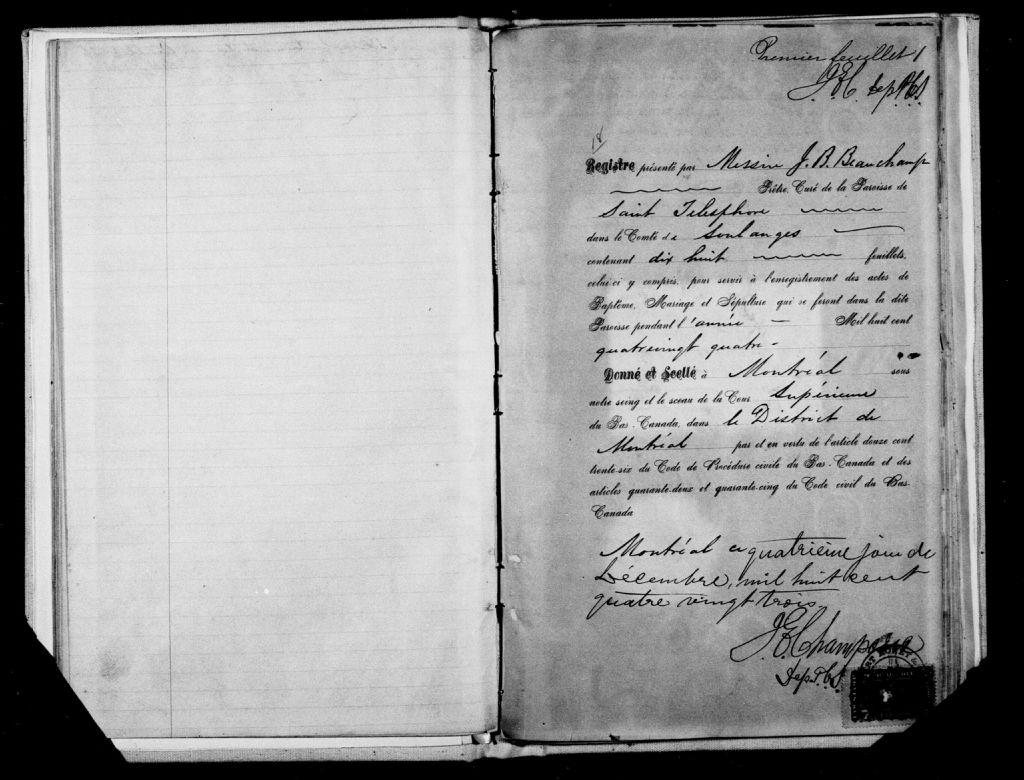 Premier feuillet 1
J.E.C. Dep. P.C.S.
18
Registre présenté par Messire J. B. Beauchamp
Prêtre, Curé de la Paroisse de
Saint Télesphore
dans le Comté de Soulanges
contenant dix huit feuillets,
celui-ci y compris, pour servir à l'enregistrement des actes de
Baptême, Mariage et Sépulture qui se feront dans la dite
Paroisse pendant l'année Mil huit cent
quatrevingt quatre -
Donné et Scellé à Montréal sous
notre seing et le sceau de la Cour Supérieure
du Bas-Canada, dans le District de
Montréal par et en vertu de l'article douze cent
trente-six du Code de Procédure civile du Bas-Canada et des
articles quarante-deux et quarante-cinq du Code civil du Bas-
Canada
Montréal ce quatrième jour de
Décembre, mil huit cent
quatre vingt trois.
J.E. Champoux
Dep. P.C.S.